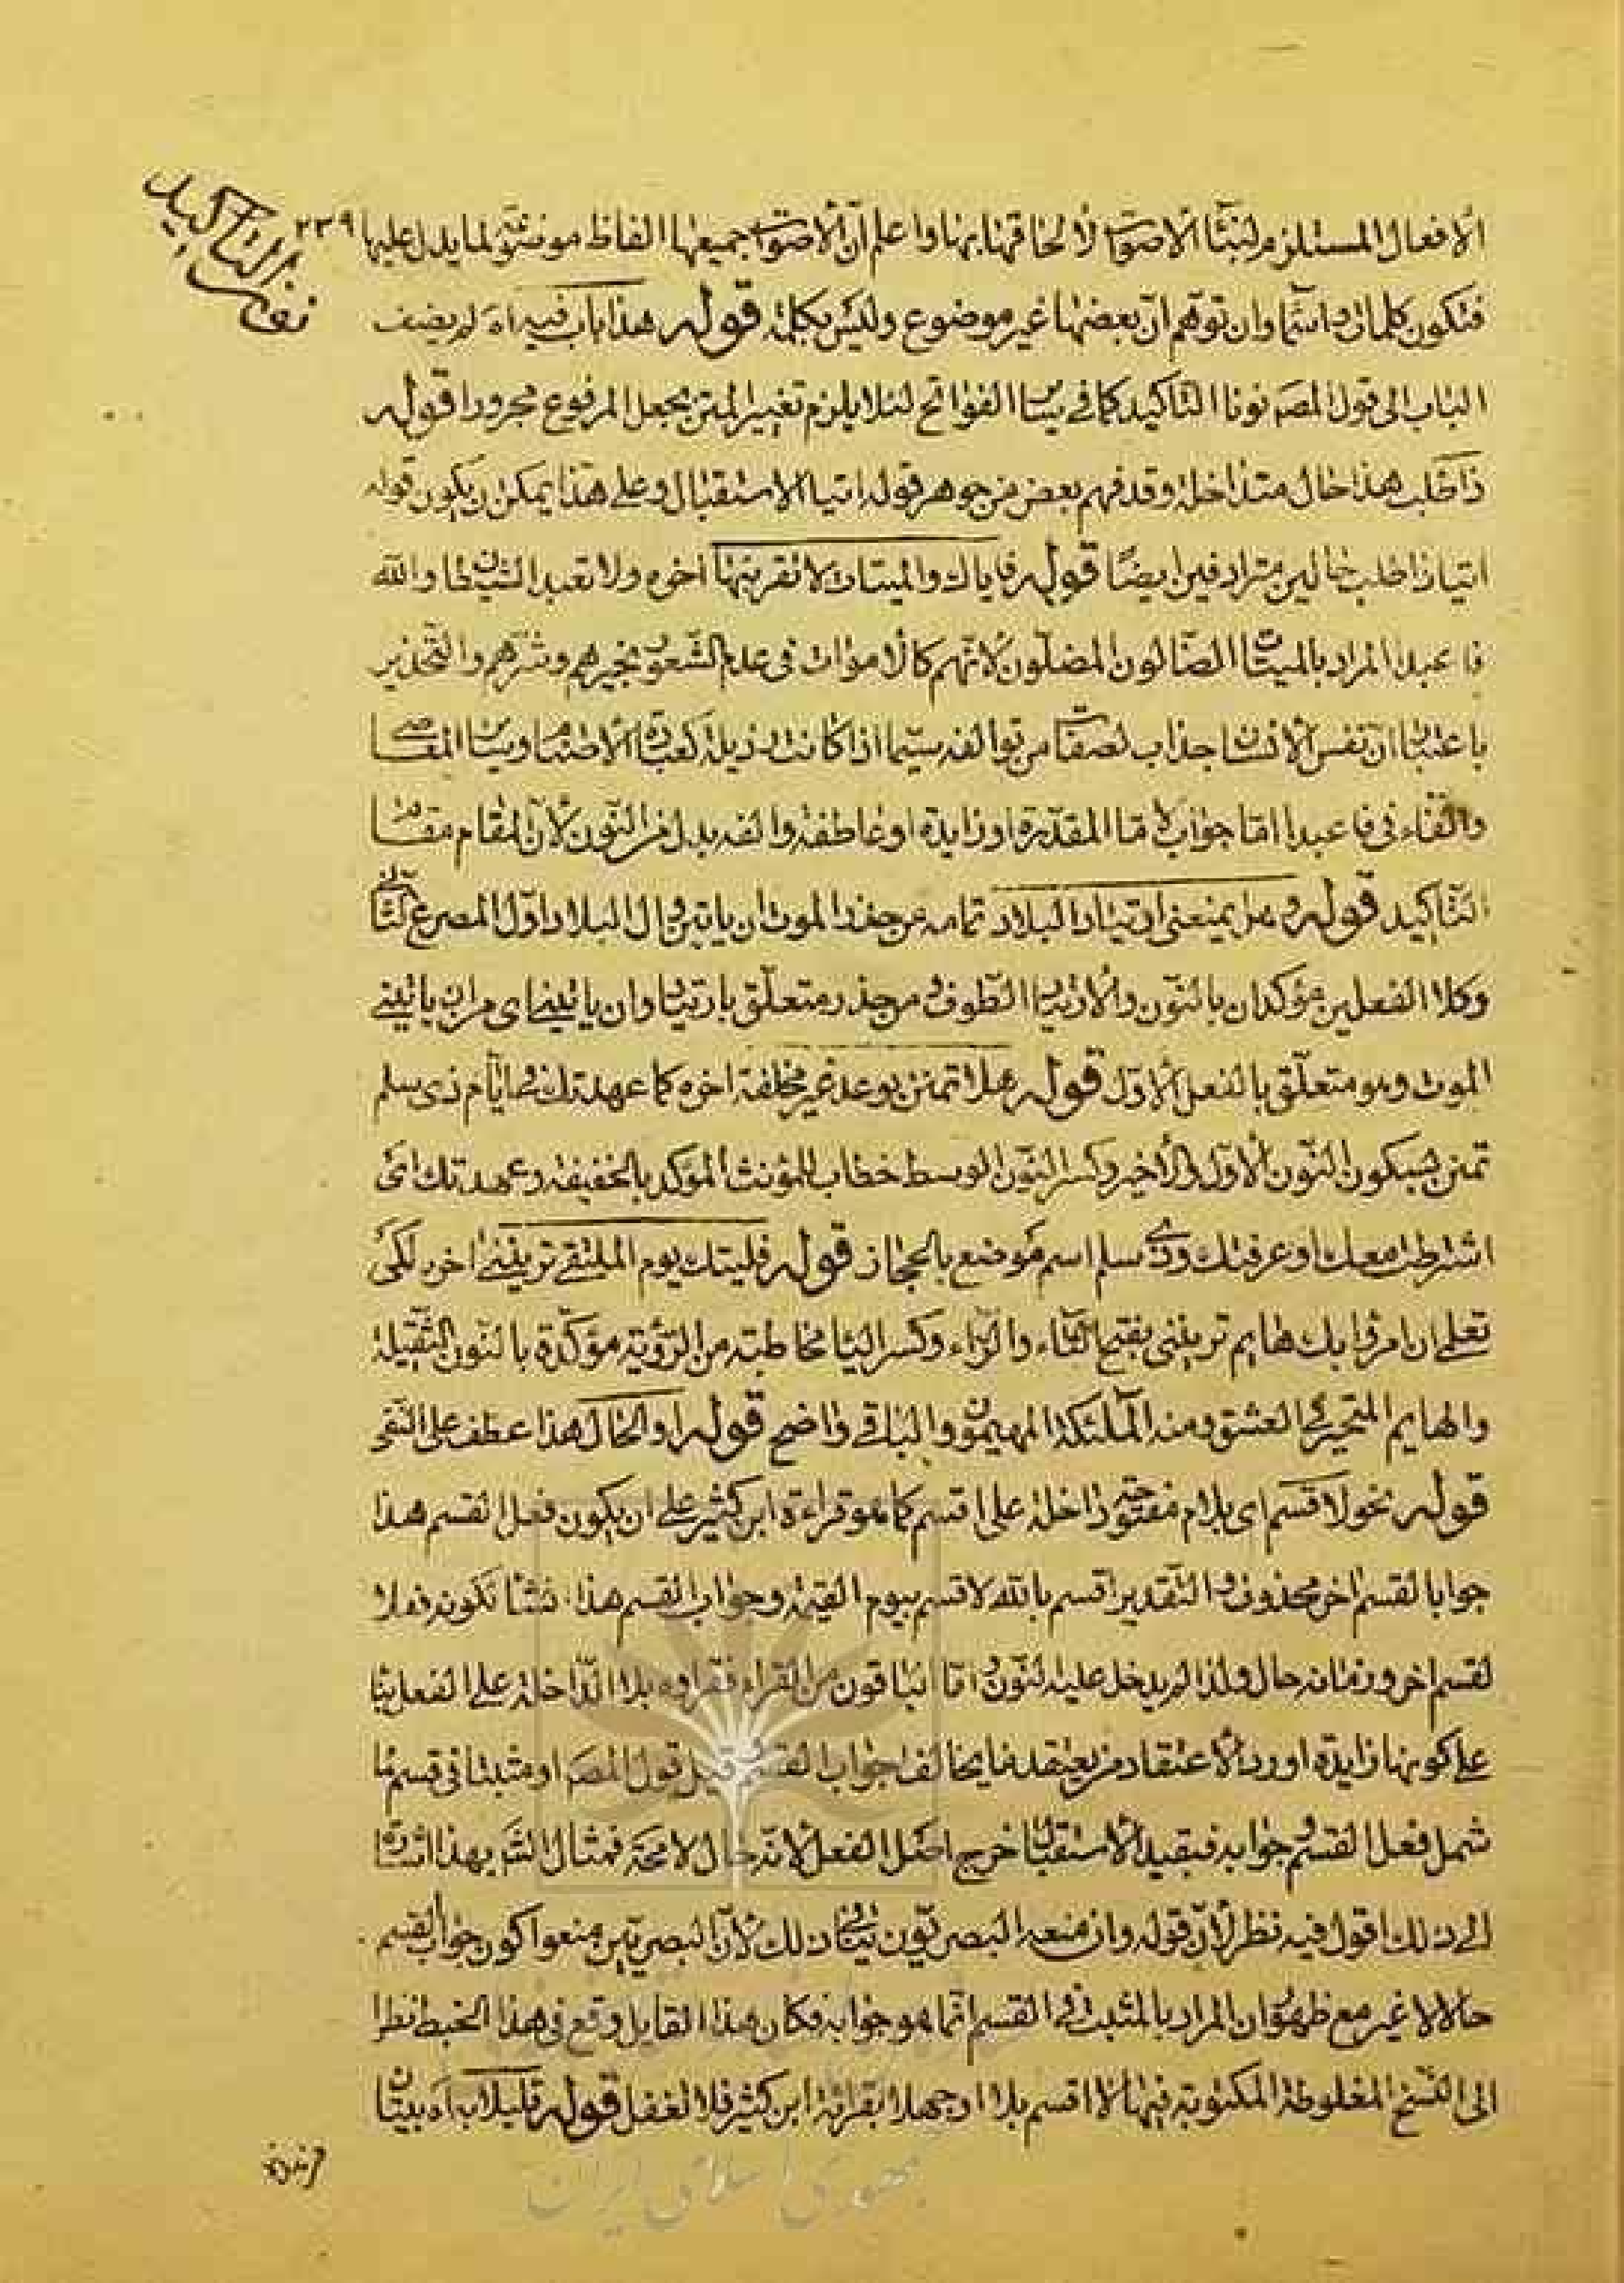 نونى التأكيد
٢٣٩
الافعال المستلزم لبناء الاصوات لالحاقها بها واعلم ان الاصوات جميعها الفاظ موضوعة لما يدل عليها
فتكون كلمات واسما وان توهم ان بعضها غير موضوع وليس بكلمة قوله هذا باب فيه اه لم يضف
الباب الى قول المصه نونا التأكيد كما فى بيان الفواتح لئلا يلزم تغيير المتن بجعل المرفوع مجرورا قوله
ذا طلب هذا حال متداخلة وقد فهم بعض من جوهر قوله اتيا الاستقبال وعلى هذا يمكن ان يكون قوله
اتيا ذا طلب حالين مترادفين ايضا قوله فاياك والميتات لا تقربنها اخره ولا تعبد الشيطان والله
فاعبدا المراد بالميتات الضالون المضلون لانهم كالاموات فى عدم الشعور بخيرهم وشرهم والتحذير
باعتبار ان نفس الانسان جذاب لصفات من توالفه سيما اذا كانت رذيلة كعبادة الاصنام وبيان المعاصى
والفاء فى فاعبدا اما جواب لاما المقدرة او زايدة او عاطفة والفه بدل من النون لان المقام مقام
التأكيد قوله وهل يمنعنى ارتياد البلاد تمامه من حذر الموت ان ياتين وال البلاد اول المصرع الثانى
وكلا الفعلين مؤكدان بالنون والارتياد الطوف ومن حذر متعلق بارتياد وان ياتينى اى من ان ياتينى
الموت وهو متعلق بالفعل الاول قوله هلا تمنن بوعد غير مخلفة اخره كما عهدتك فى ايام ذى سلم
تمنن بسكون النون الاول والاخير وكسر النون الوسط خطاب للمؤنث المؤكد بالخفيفة وعهدتك اى
اشترطت معك او عرفتك وذى سلم اسم موضع بالحجاز قوله فليتك يوم الملتقى ترينني اخره لكى
تعلمى انى امرؤ بك هايم ترينني بفتح التاء والراء وكسر اليا مخاطبة من الرؤية مؤكدة بالنون الثقيلة
والهايم المتحير فى العشق ومنه الملئكة المهيمون والباقى واضح قوله او الحال هذا عطف على النفى
قوله نحو لاقسم اى بلام مفتوحة داخلة على اقسم كما هو قراءة ابن كثير على ان يكون فعل القسم هذا
جوابا لقسم اخر محذوف والتقدير اقسم بالله لاقسم بيوم القيمة وجواب القسم هذا
لقسم اخر وزمانه حال ولذا لم يدخل عليه النون واما الباقون من القراء فقراوه بلا الداخلة على الفعل بنا
على كونها زايدة او رد الاعتقاد من يعتقد ما يخالف جواب القسم قيل قول المصه او مثبتا فى قسم ما
شمل فعل القسم وجوابه فبقيد الاستقبال خرج الفعل لانه حال لا محة فمثال الشر بهذا اشارة
الى ذلك اقول فيه نظر لان قوله وان منعه البصريون ينافى ذلك لان البصريين منعوا كون جواب القسم
حالا لا غير مع ظهور ان المراد بالمثبت فى القسم انما هو جوابه فكان هذا القايل وقع فى هذا الخبط نظرا
الى النسخ المغلوطة المكتوبة فيها لا اقسم بلا او جهلا بقرائة ابن كثير فلا تغفل قوله قليلا به اه بيتان
جمهوری اسلامی ایران